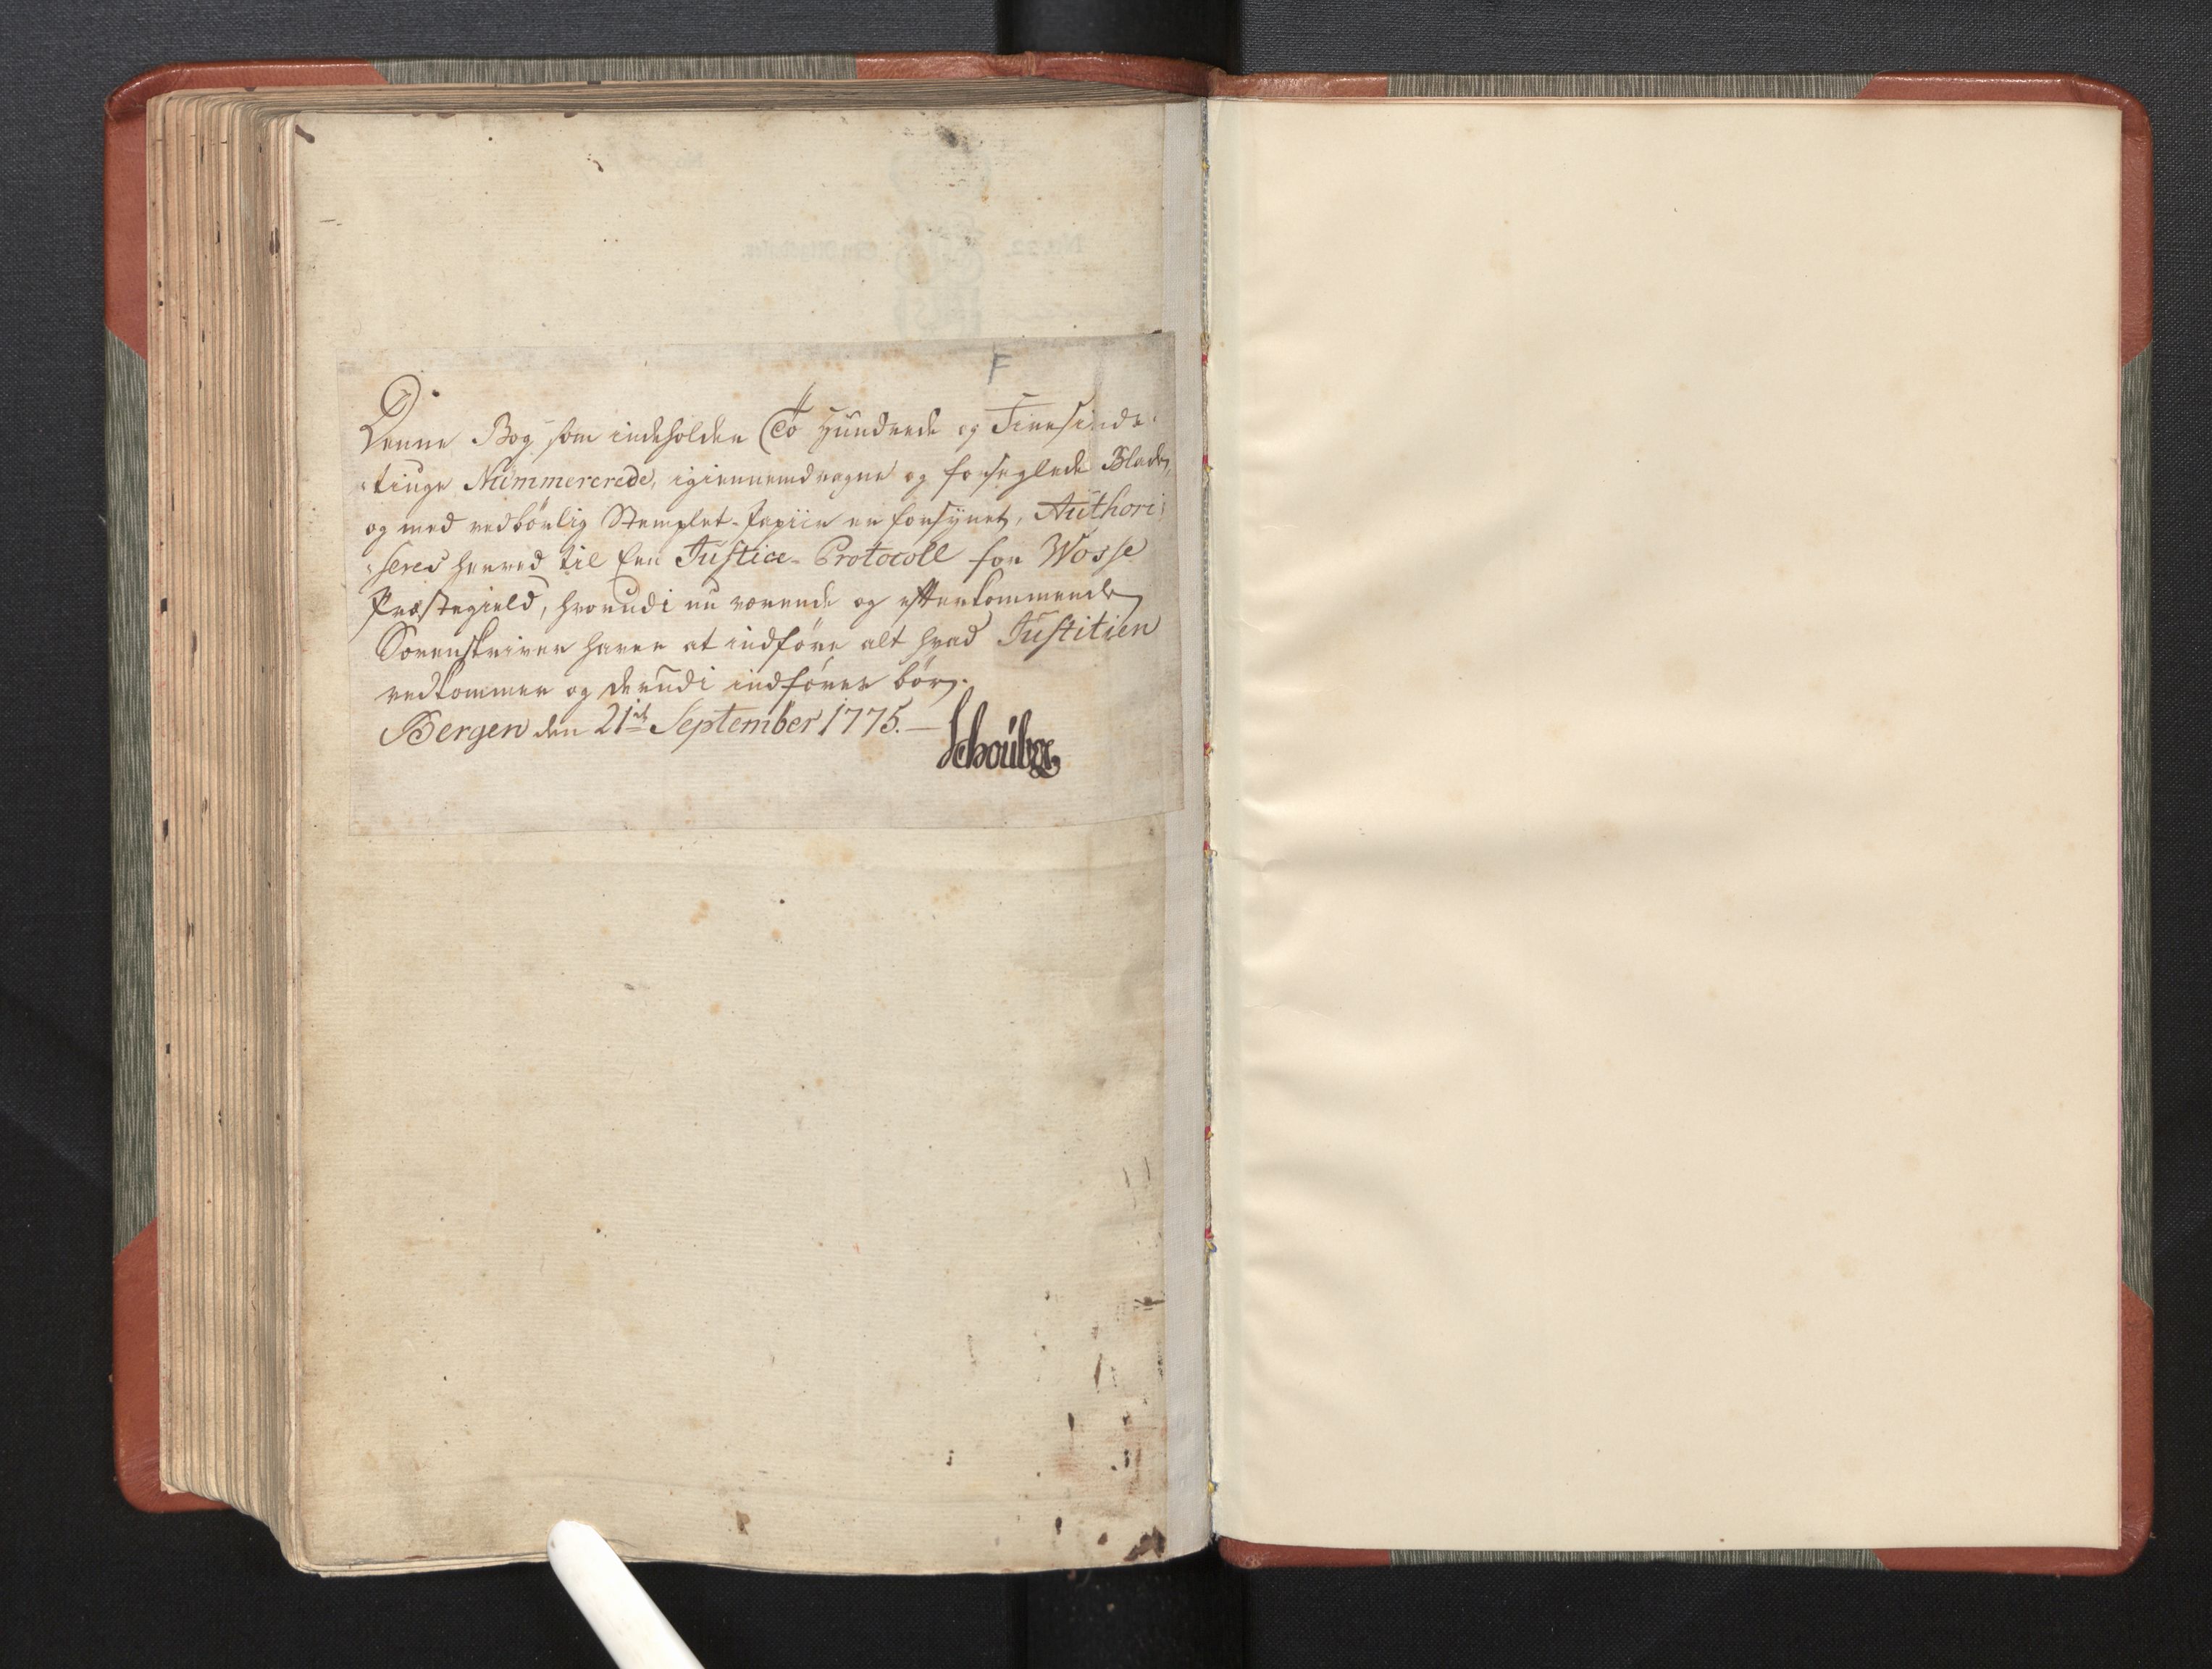 F
Denne Bog som indeholder To Hundrede og Firesinds-
-tiuge Nummererede, igiennemdragne og forseglede Blade,
og med vedbørlig Stemplet-Papiir er forsÿnet, Authori-
-seres herved til Een Justice-Protocoll for Wosse
Præstegield, hvorudi nu værende og efterkommende
Sorenskriver haver at indføre alt hvad Justitien
vedkommer og derudi indføres bør.
Bergen den 21de September 1775.—
Schouboe